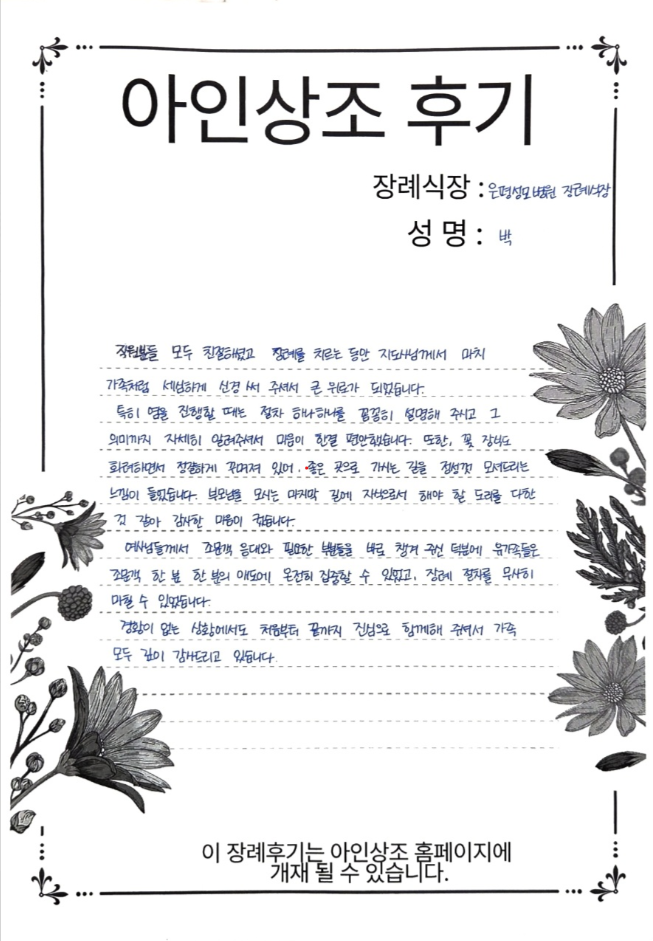 아인상조 후기
장례식장 : 은평성모병원 장례식장
성 명 : 박
직원분들 모두 친절하셨고 장례를 치르는 동안 지도사님께서 마치
가족처럼 세심하게 신경 써 주셔서 큰 위로가 되었습니다.
특히 염을 진행할 때는 절차 하나하나를 꼼꼼히 설명해 주시고 그
의미까지 자세히 알려주셔서 마음이 한결 편안했습니다. 또한, 꽃 장식도
화려하면서 정갈하게 꾸며져 있어, 좋은 곳으로 가시는 길을 정성껏 모셔드리는
느낌이 들었습니다. 부모님을 모시는 마지막 길에 자식으로서 해야 할 도리를 다한
것 같아 감사한 마음이 컸습니다.
여사님들께서 조문객 응대와 필요한 부분들을 바로 챙겨 주신 덕분에 유가족들은
조문객 한 분 한 분의 애도에 온전히 집중할 수 있었고, 장례 절차를 무사히
마칠 수 있었습니다.
경황이 없는 상황에서도 처음부터 끝까지 진심으로 함께해 주셔서 가족
모두 깊이 감사드리고 있습니다.
이 장례후기는 아인상조 홈페이지에
개재 될 수 있습니다.